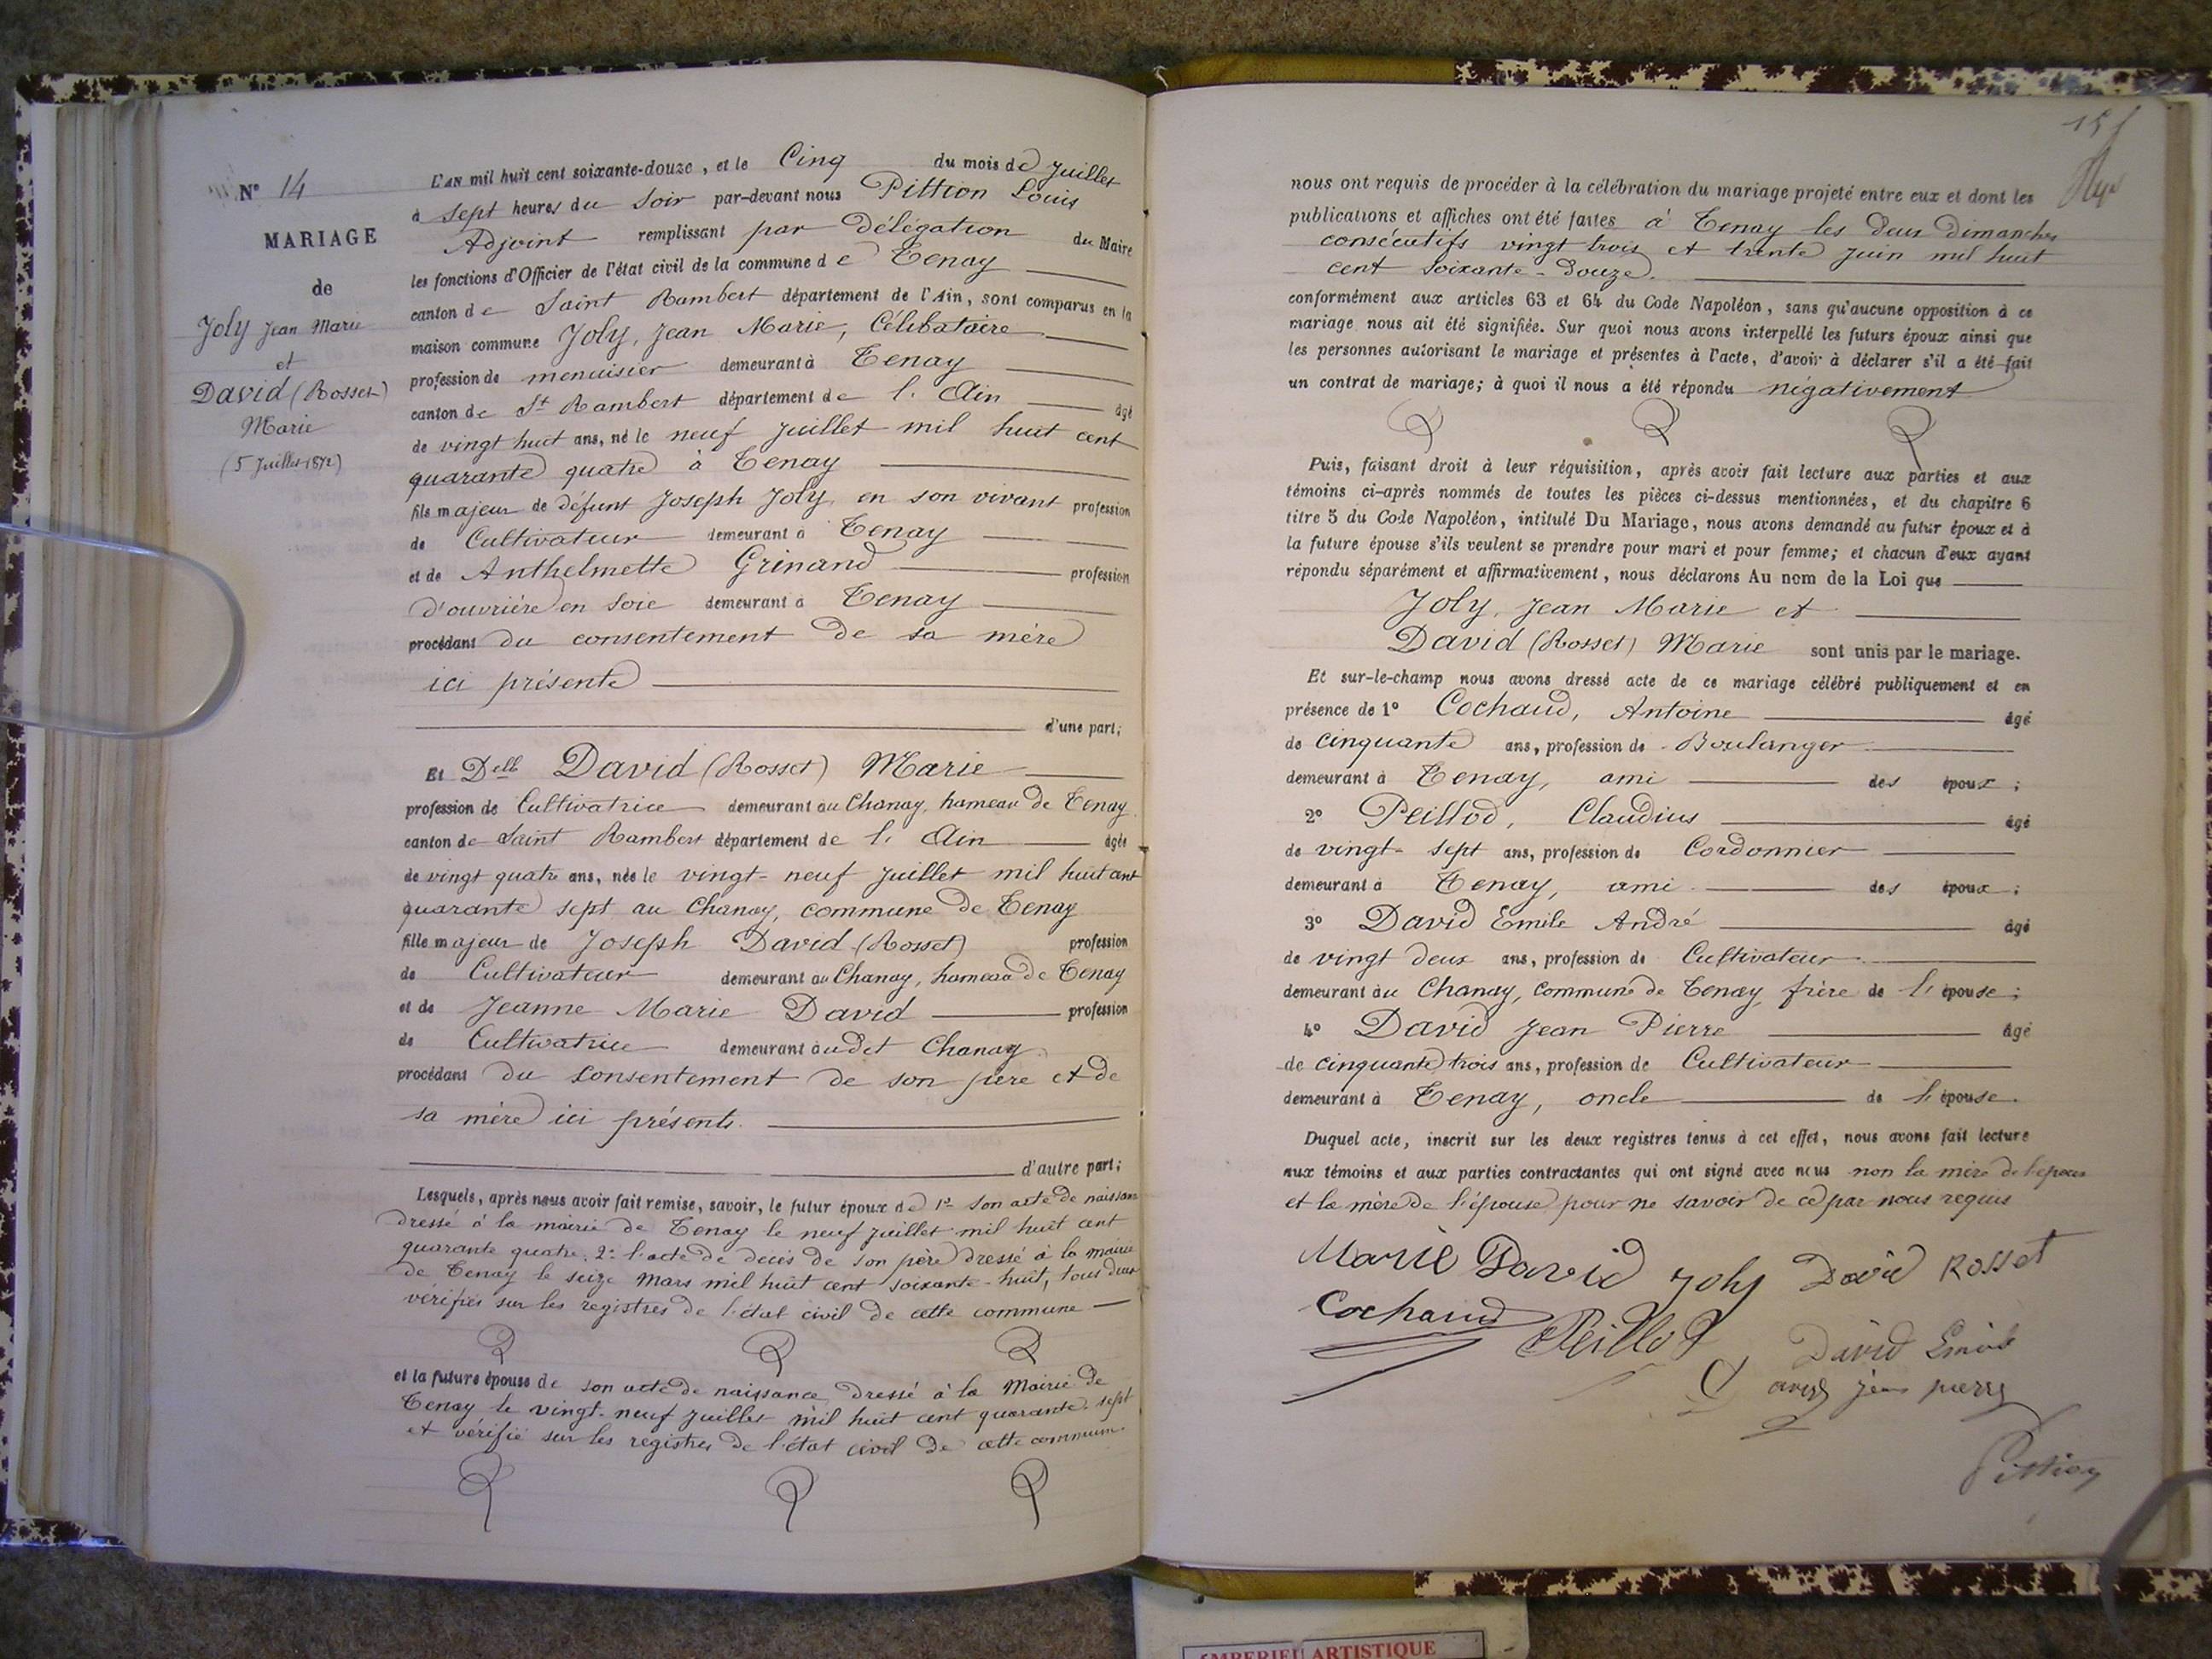 N° 14
MARIAGE
de
Joly Jean Marie
et
David (Rosset)
Marie
(5 Juillet 1872)
L'AN mil huit cent soixante-douze, et le Cinq du mois de Juillet
à sept heures du Soir par-devant nous Pittion Louis
Adjoint remplissant par délégation du Maire
les fonctions d'Officier de l'état civil de la commune de Tenay
canton de Saint Rambert département de l'Ain, sont comparus en la
maison commune Joly, Jean Marie, Célibataire
profession de menuisier demeurant à Tenay
canton de St Rambert département de l'Ain âgé
de vingt huit ans, né le neuf Juillet mil huit cent
quarante quatre à Tenay
fils majeur de défunt Joseph Joly, en son vivant profession
de Cultivateur demeurant à Tenay
et de Anthelmette Grinand profession
d'ouvrière en soie demeurant à Tenay
procédant du consentement de sa mère
ici présente
d'une part;
Et Delle David (Rosset) Marie
profession de Cultivatrice demeurant au Chanay, hameau de Tenay
canton de Saint Rambert département de l'Ain âgée
de vingt quatre ans, née le vingt-neuf Juillet mil huit cent
quarante sept au Chanay, commune de Tenay
fille majeur de Joseph David (Rosset) profession
de Cultivateur demeurant au Chanay, hameau de Tenay
et de Jeanne Marie David profession
de Cultivatrice demeurant audt Chanay
procédant du consentement de son père et de
sa mère ici présents.
d'autre part;
Lesquels, après nous avoir fait remise, savoir, le futur époux de 1° Son acte de naissance
dressé à la mairie de Tenay le neuf Juillet mil huit cent
quarante quatre. 2° l'acte de décès de son père dressé à la mairie
de Tenay le seize Mars mil huit cent soixante-huit, tous deux
vérifiés sur les registres de l'état civil de cette commune
et la future épouse de son acte de naissance dressé à la Mairie de
Tenay le vingt-neuf Juillet mil huit cent quarante-sept
et vérifié sur les registres de l'état civil de cette commune.
nous ont requis de procéder à la célébration du mariage projeté entre eux et dont les
publications et affiches ont été faites à Tenay les deux dimanches
consécutifs vingt trois et trente Juin mil huit
cent soixante-douze.
conformément aux articles 63 et 64 du Code Napoléon, sans qu'aucune opposition à ce
mariage nous ait été signifiée. Sur quoi nous avons interpellé les futurs époux ainsi que
les personnes autorisant le mariage et présentes à l'acte, d'avoir à déclarer s'il a été fait
un contrat de mariage; à quoi il nous a été répondu négativement
Puis, faisant droit à leur réquisition, après avoir fait lecture aux parties et aux
témoins ci-après nommés de toutes les pièces ci-dessus mentionnées, et du chapitre 6
titre 5 du Code Napoléon, intitulé Du Mariage, nous avons demandé au futur époux et à
la future épouse s'ils veulent se prendre pour mari et pour femme; et chacun d'eux ayant
répondu séparément et affirmativement, nous déclarons Au nom de la Loi que
Joly, Jean Marie et
David (Rosset) Marie sont unis par le mariage.
Et sur-le-champ nous avons dressé acte de ce mariage célébré publiquement et en
présence de 1° Cochaud, Antoine âgé
de cinquante ans, profession de Boulanger
demeurant à Tenay, ami des époux;
2° Peillod, Claudius âgé
de vingt-sept ans, profession de Cordonnier
demeurant à Tenay, ami des époux;
3° David Emile André âgé
de vingt deux ans, profession de Cultivateur
demeurant au Chanay, commune de Tenay, frère de l'épouse;
4° David Jean Pierre âgé
de cinquante trois ans, profession de Cultivateur
demeurant à Tenay, oncle de l'épouse.
Duquel acte, inscrit sur les deux registres tenus à cet effet, nous avons fait lecture
aux témoins et aux parties contractantes qui ont signé avec nous non la mère de l'époux
et la mère de l'épouse pour ne savoir de ce par nous requis
Marie David Joly David Rosset
Cochaud Peillod David Emile
jean pierre
Pittion
AMBERIEU ARTISTIQUE